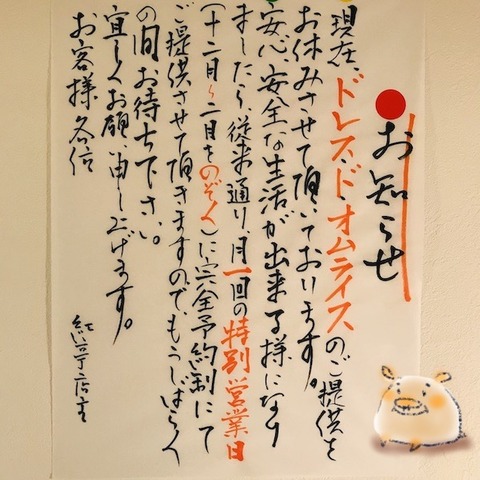 お知らせ
現在、ドレス・ド・オムライスのご提供を
お休みさせて頂いております。
安心、安全な生活が出来る様になり
ましたら、従来通り、月一回の特別営業日
(十二月〜二月をのぞく)に完全予約制にて
ご提供させて頂きますので、もうしばらく
の間お待ち下さい。
宜しくお願い申し上げます。
お客様各位
紅亭店主